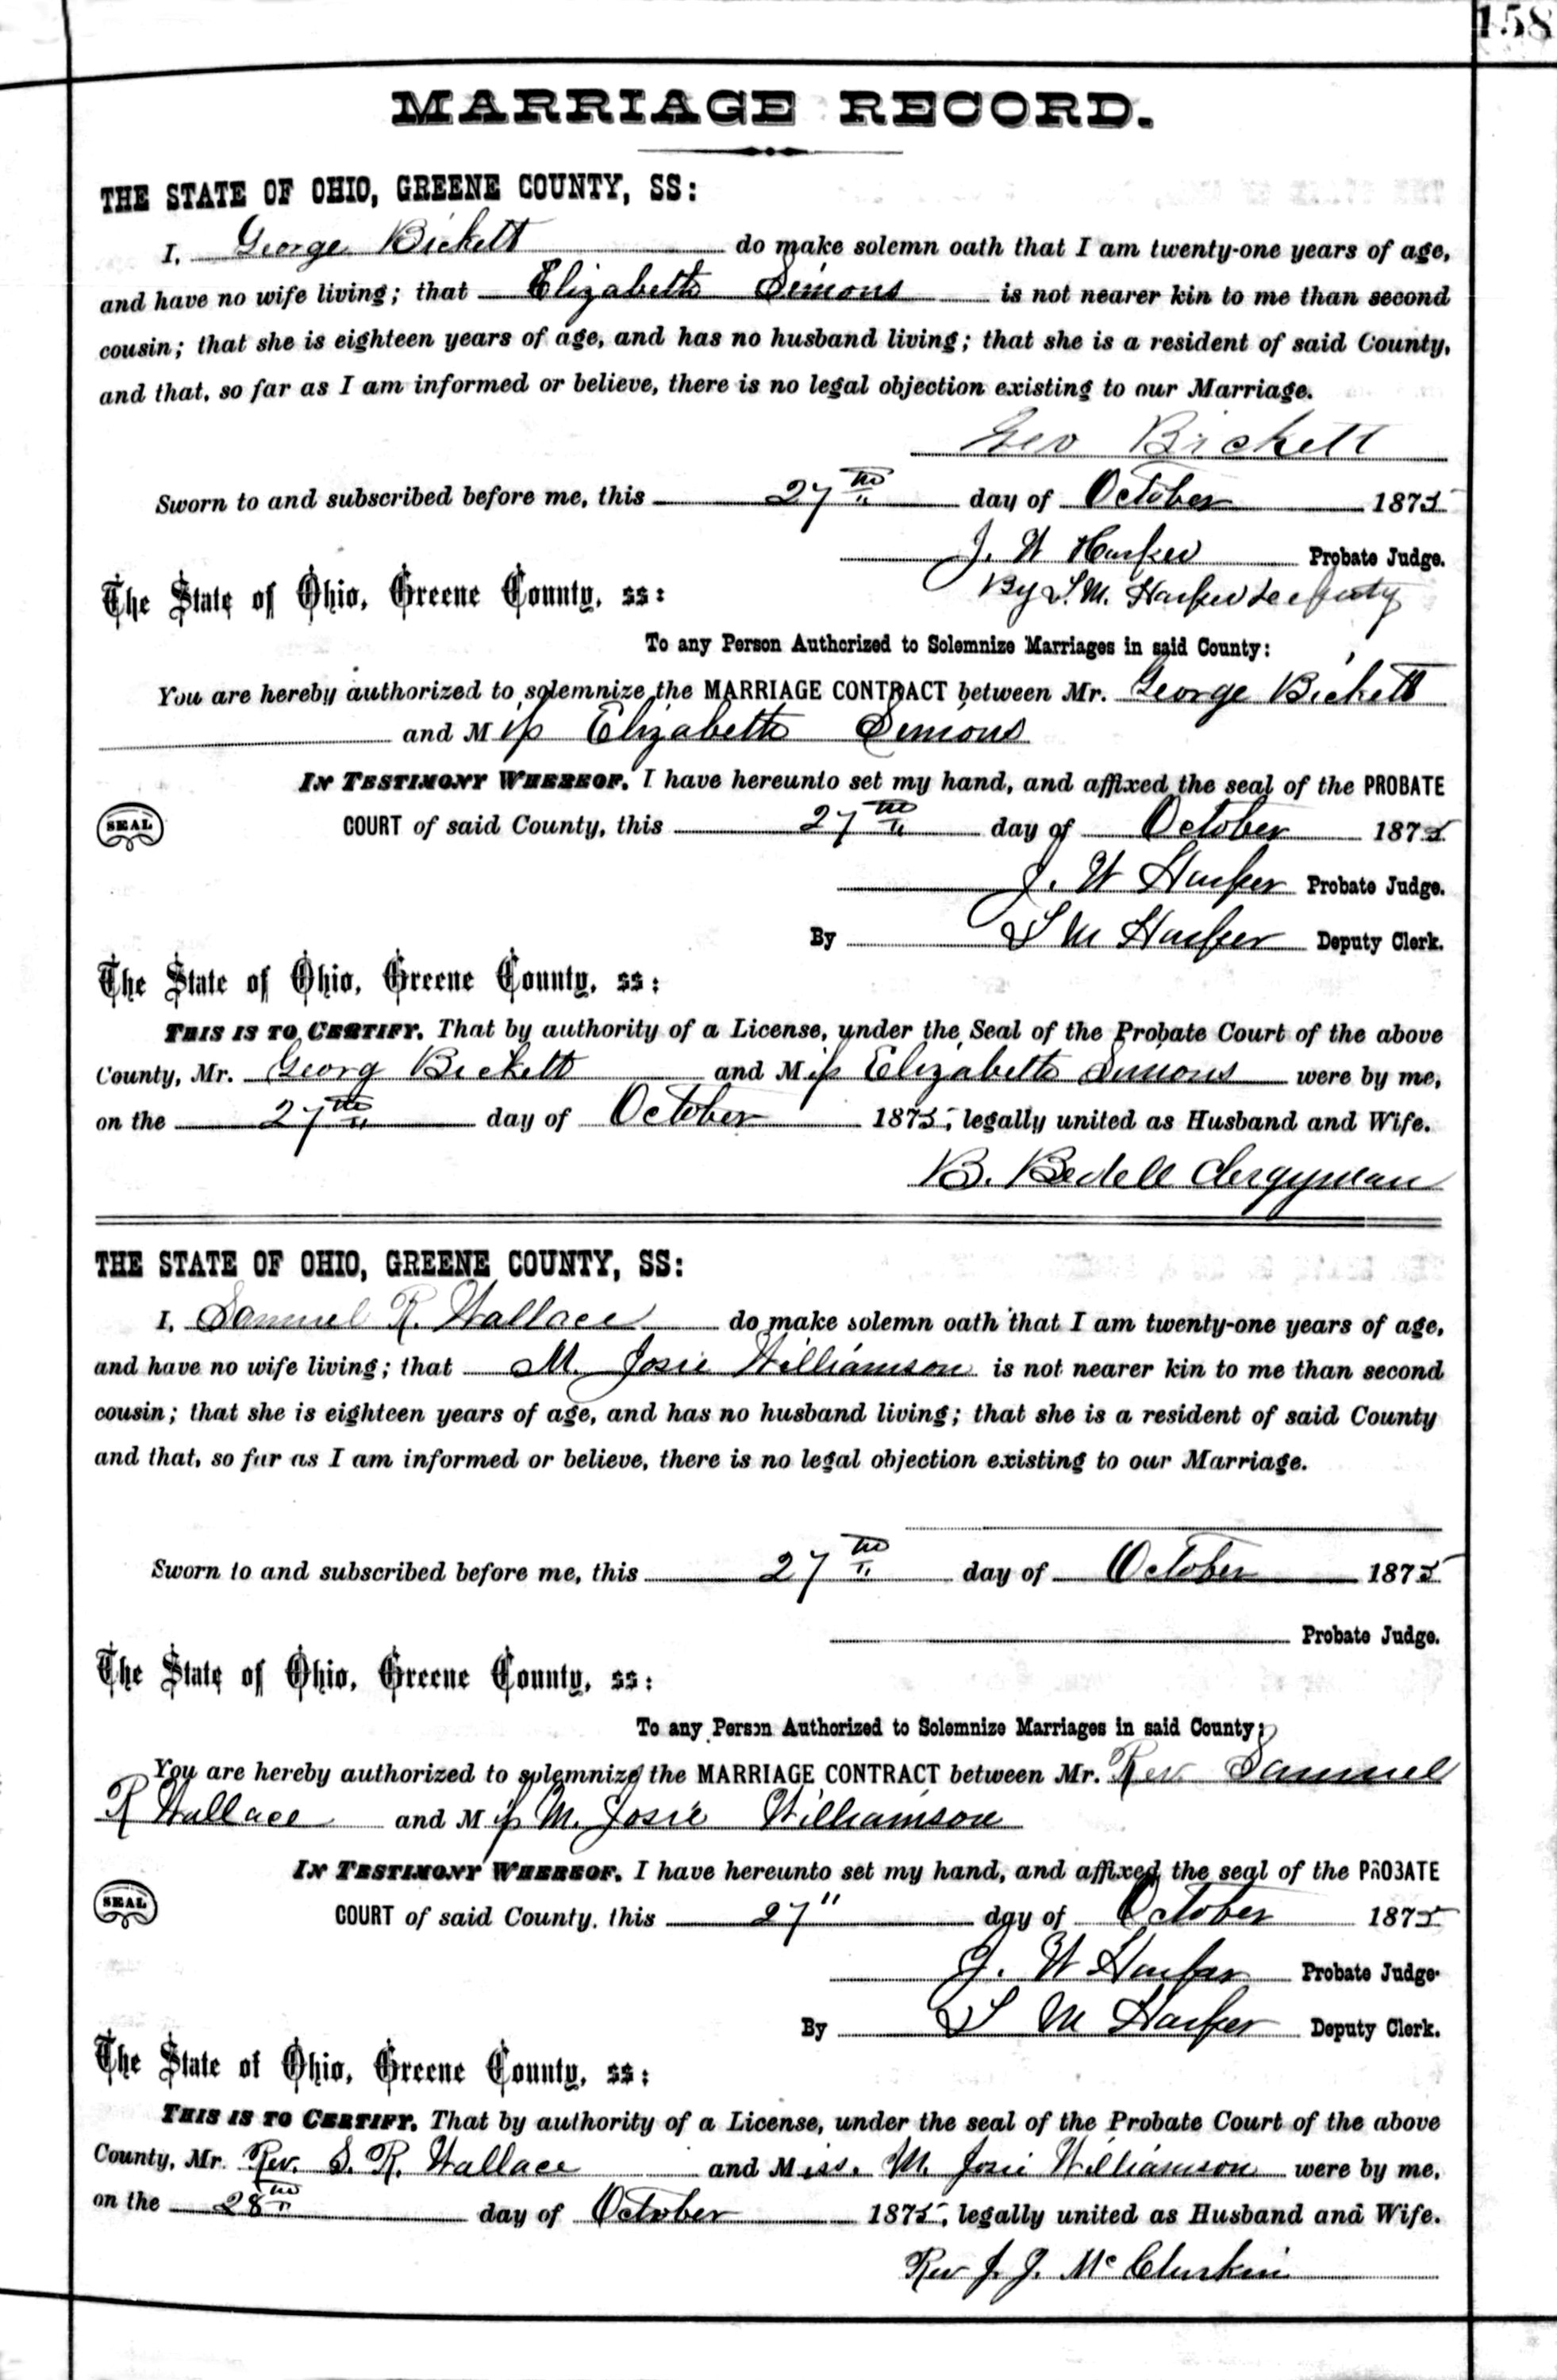 158
MARRIAGE RECORD.
THE STATE OF OHIO, GREENE COUNTY, SS:
I, George Bickett do make solemn oath that I am twenty-one years of age,
and have no wife living; that Elizabeth Simons is not nearer kin to me than second
cousin; that she is eighteen years of age, and has no husband living; that she is a resident of said County,
and that, so far as I am informed or believe, there is no legal objection existing to our Marriage.
Geo Bickett
Sworn to and subscribed before me, this 27th day of October 1875
J. W Harper Probate Judge.
By S. M. Harper Deputy
The State of Ohio, Greene County, ss:
To any Person Authorized to Solemnize Marriages in said County:
You are hereby authorized to solemnize the MARRIAGE CONTRACT between Mr. George Bickett
and Miss Elizabeth Simons
IN TESTIMONY WHEREOF, I have hereunto set my hand, and affixed the seal of the PROBATE
SEAL COURT of said County, this 27th day of October 1875
J. W Harper Probate Judge.
By S M Harper Deputy Clerk.
The State of Ohio, Greene County, ss:
THIS IS TO CERTIFY, That by authority of a License, under the Seal of the Probate Court of the above
County, Mr. Georg Bickett and Miss Elizabeth Simons were by me,
on the 27th day of October 1875, legally united as Husband and Wife.
B. Bedell Clergyman
THE STATE OF OHIO, GREENE COUNTY, SS:
I, Samuel R. Wallace do make solemn oath that I am twenty-one years of age,
and have no wife living; that M. Josie Williamson is not nearer kin to me than second
cousin; that she is eighteen years of age, and has no husband living; that she is a resident of said County
and that, so far as I am informed or believe, there is no legal objection existing to our Marriage.
Sworn to and subscribed before me, this 27th day of October 1875
Probate Judge.
The State of Ohio, Greene County, ss:
To any Person Authorized to Solemnize Marriages in said County:
You are hereby authorized to solemnize the MARRIAGE CONTRACT between Mr. Rev. Samuel
R Wallace and Miss M. Josie Williamson
IN TESTIMONY WHEREOF, I have hereunto set my hand, and affixed the seal of the PROBATE
SEAL COURT of said County, this 27" day of October 1875
J. W Harper Probate Judge.
By S M Harper Deputy Clerk.
The State of Ohio, Greene County, ss:
THIS IS TO CERTIFY, That by authority of a License, under the seal of the Probate Court of the above
County, Mr. Rev. S. R. Wallace and Miss. M. Josie Williamson were by me,
on the 28th day of October 1875, legally united as Husband and Wife.
Rev J. J. McClurkin